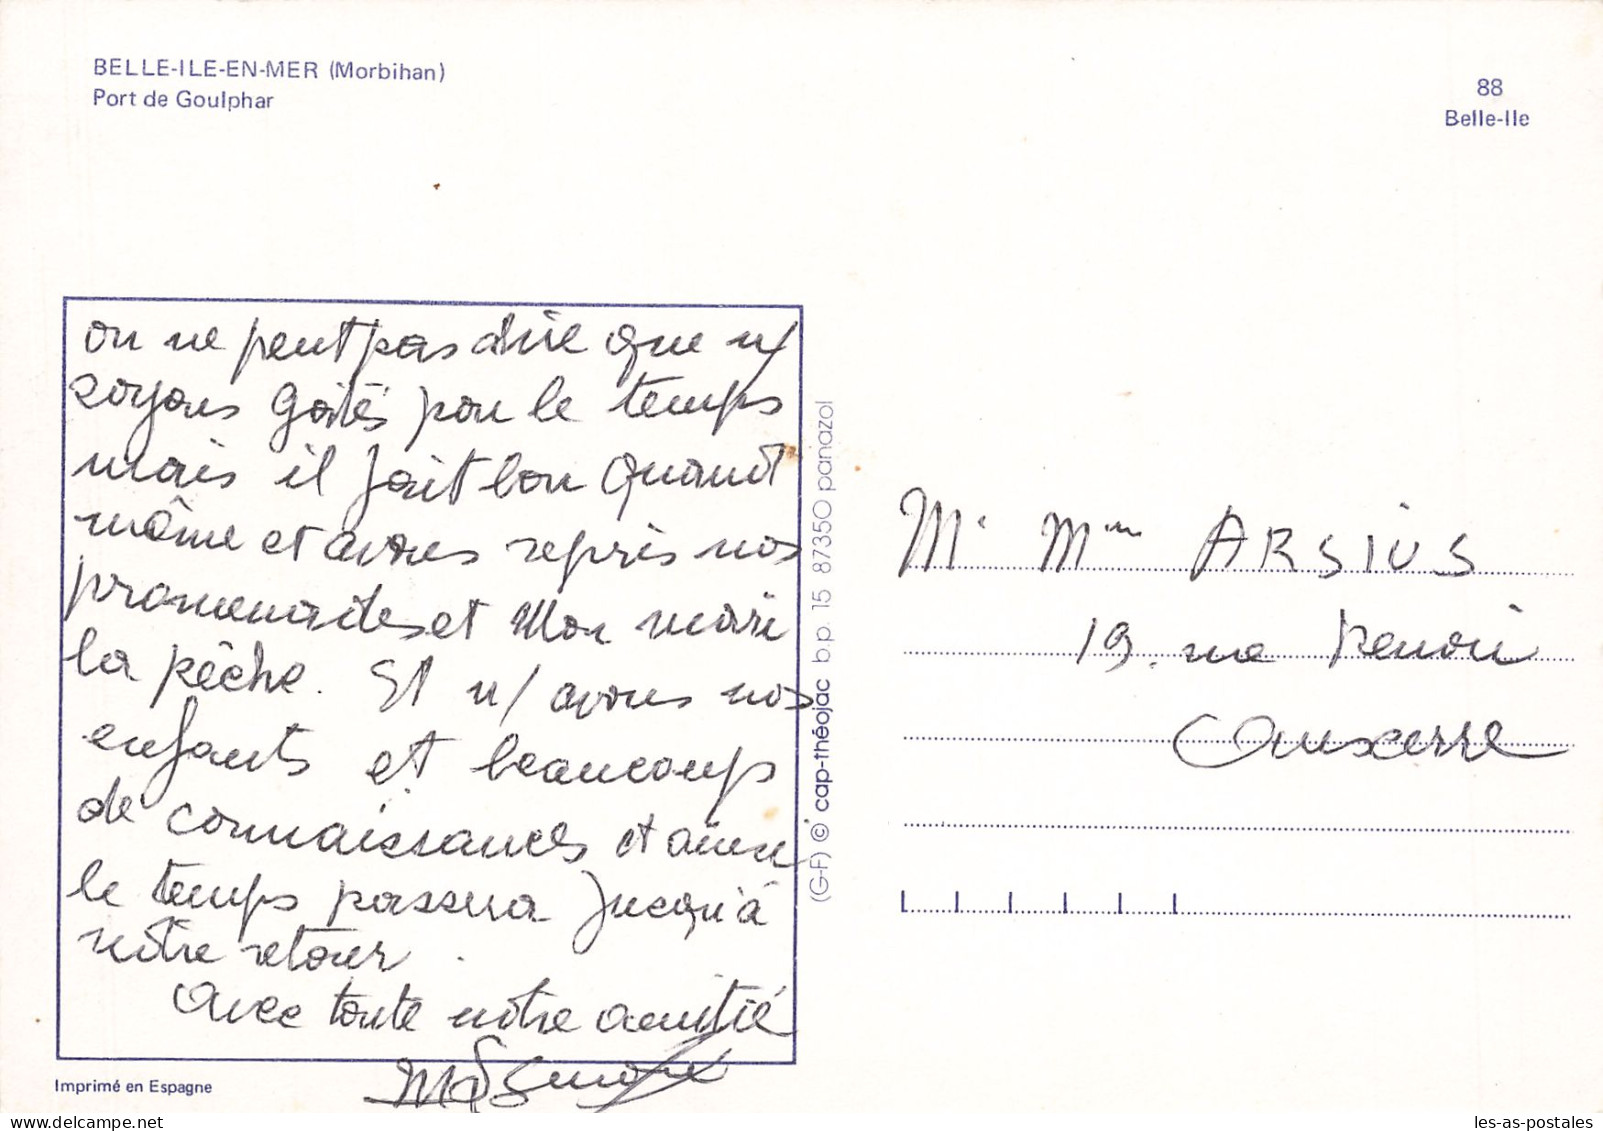 BELLE-ILE-EN-MER (Morbihan)
Port de Goulphar
88
Belle-Ile
on ne peut pas dire que n/
soyons gâtés pour le temps
mais il fait bon quand
même et avons repris nos
promenades et Mon mari
la pêche. Et n/ avons nos
enfants et beaucoup
de connaissances et ainsi
le temps passera jusqu'à
nôtre retour.
Avec toute nôtre amitié
(G-F) © cap-théojac b.p. 15 87350 panazol
M. Mme ARSIUS
19. rue Renoir
Auxerre
Imprimé en Espagne
les-as-postales